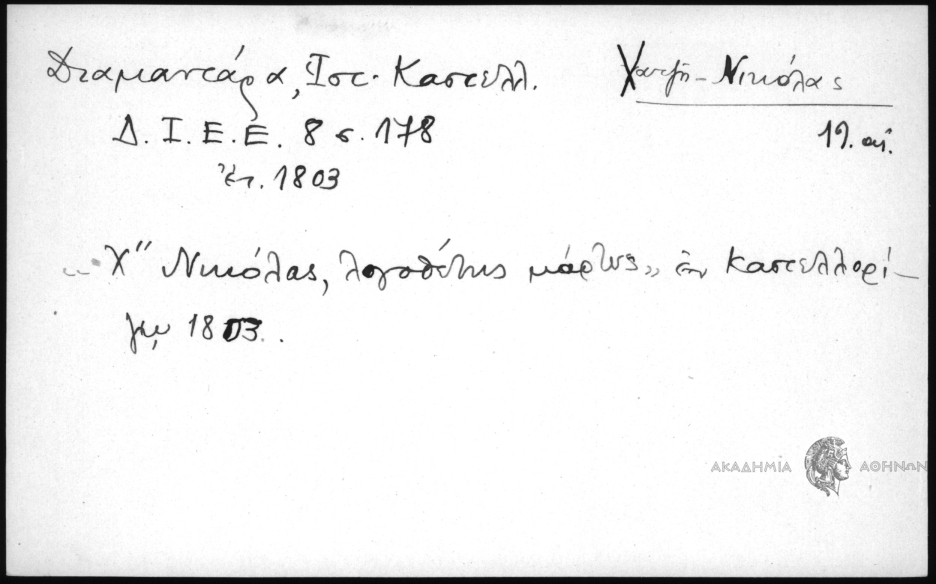 Διαμαντάρα, Ιστ. Καστελλ.
Χατζη-Νικόλας
Δ. Ι. Ε. Ε. 8 σ. 178
19. αἰ.
ἔτ. 1803
„ Χ" Νικόλας, λογοθέτης μάρτυς „ ἐν Καστελλορί-
ζῳ 1803.
ΑΚΑΔΗΜΙΑ ΑΘΗΝΩΝ